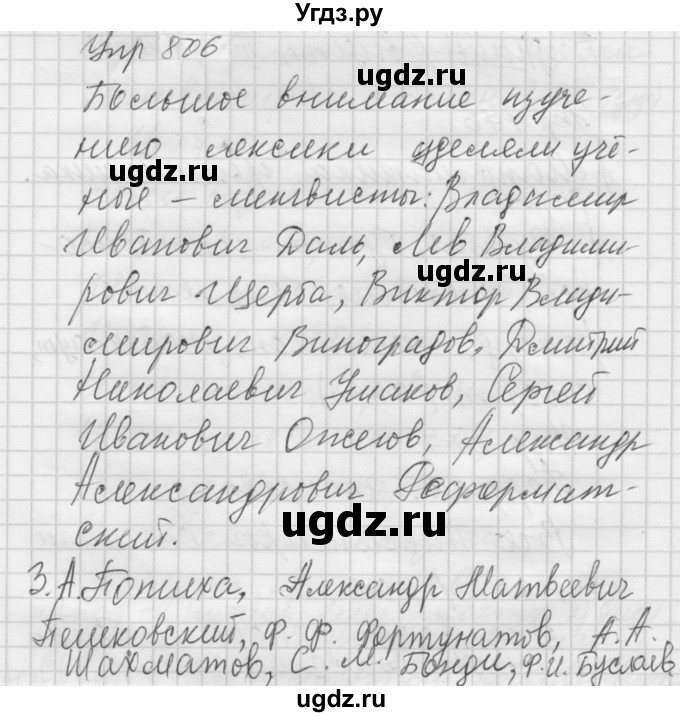 Угдз.ру
Упр 806
ugdz.ru
Большое внимание изуче-
нию лексики уделяли учё-
ugdz.ru
ные – лингвисты: Владимир
Иванович Даль, Лев Владими-
ugdz.ru
рович Щерба, Виктор Влади-
мирович Виноградов, Дмитрий
Николаевич Ушаков, Сергей
Иванович Ожегов, Александр
Александрович Реформат-
ugdz.ru
ский.
З.А. Потиха, Александр Матвеевич
Пешковский, Ф. Ф. Фортунатов, А. А.
Шахматов, С. М. Бонди, Ф.И. Буслаев
ugdz.ru